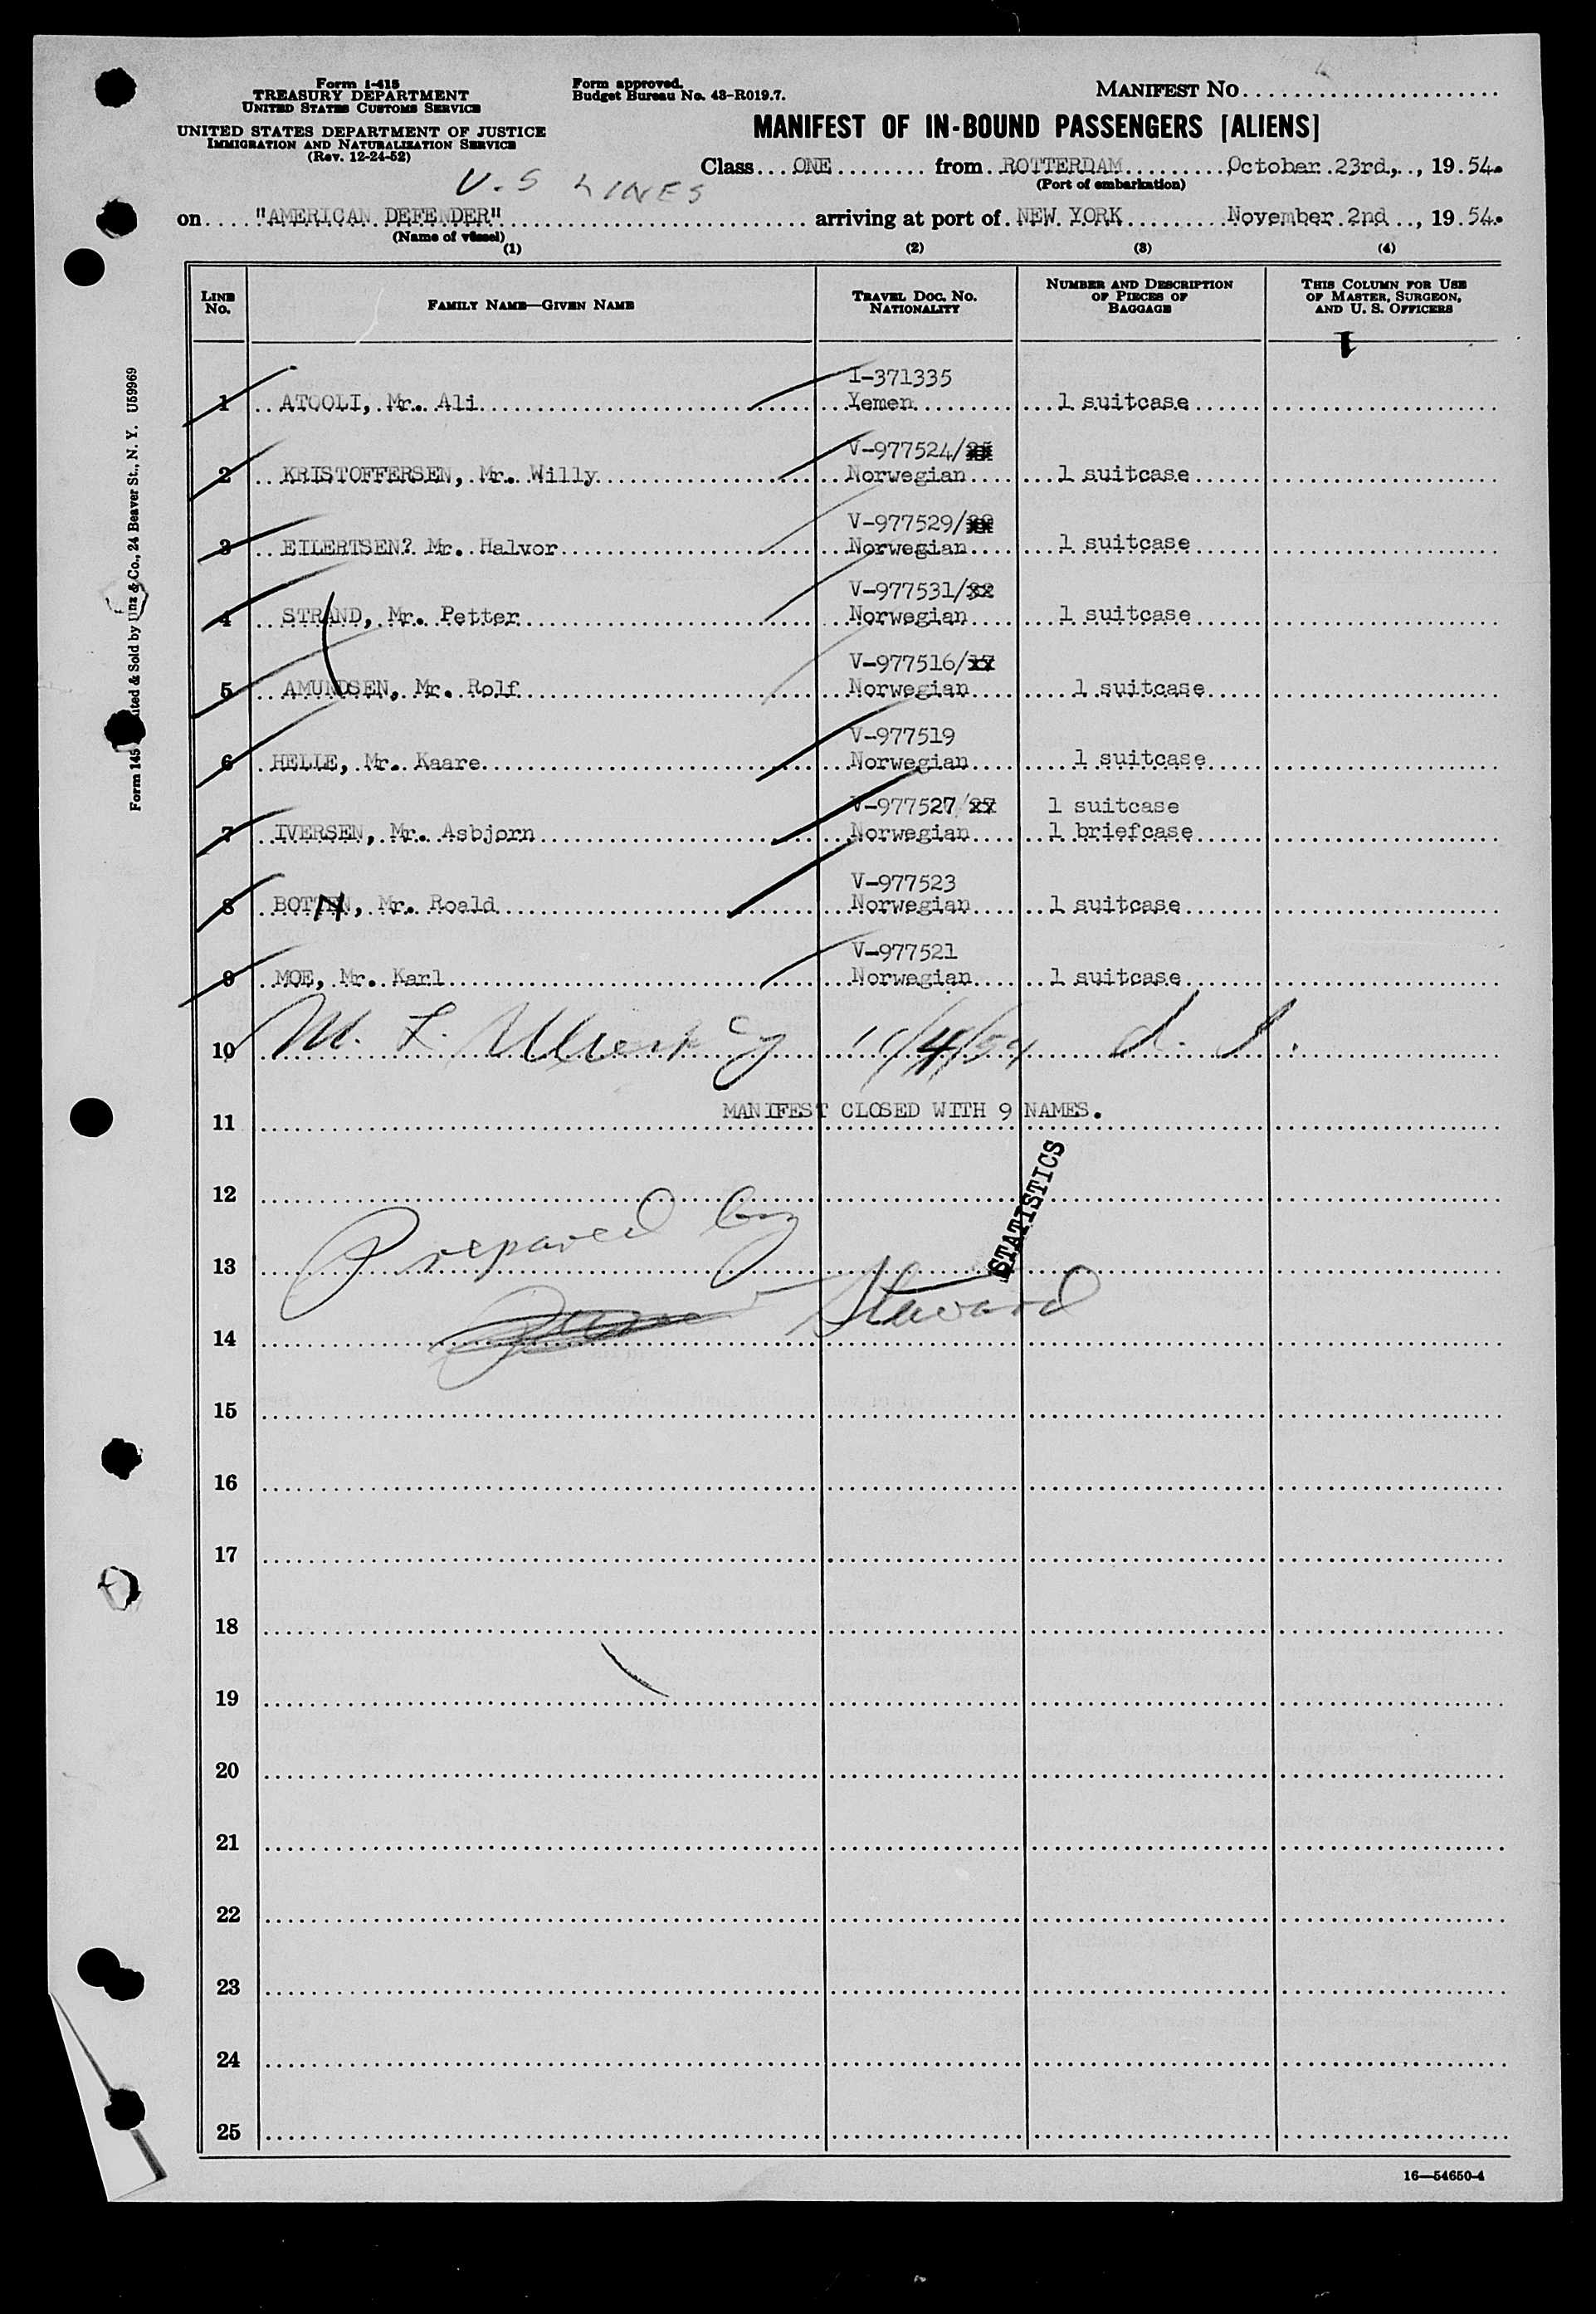 Form I-415
TREASURY DEPARTMENT
UNITED STATES CUSTOMS SERVICE
UNITED STATES DEPARTMENT OF JUSTICE
IMMIGRATION AND NATURALIZATION SERVICE
(Rev. 12-24-52)
Form approved.
Budget Bureau No. 43-R019.7.
MANIFEST NO.
MANIFEST OF IN-BOUND PASSENGERS [ALIENS]
Class ONE from ROTTERDAM October 23rd., 1954.
(Port of embarkation)
U.S LINES
on "AMERICAN DEFENDER" arriving at port of NEW YORK November 2nd, 1954.
(Name of vessel)
(1) (2) (3) (4)
LINE NO. FAMILY NAME—GIVEN NAME TRAVEL DOC. NO. NATIONALITY NUMBER AND DESCRIPTION OF PIECES OF BAGGAGE THIS COLUMN FOR USE OF MASTER, SURGEON, AND U. S. OFFICERS
1
I-371335
1 ATOOLI, Mr. Ali Yemen 1 suitcase
V-977524/
2 KRISTOFFERSEN, Mr. Willy Norwegian 1 suitcase
V-977529/
3 EILERTSEN? Mr. Halvor Norwegian 1 suitcase
V-977531/32
4 STRAND, Mr. Petter Norwegian 1 suitcase
V-977516/17
5 AMUNDSEN, Mr. Rolf Norwegian 1 suitcase
V-977519
6 HELLE, Mr. Kaare Norwegian 1 suitcase
V-977527/ 1 suitcase
7 IVERSEN, Mr. Asbjorn Norwegian 1 briefcase
V-977523
8 BOTTEN, Mr. Roald Norwegian 1 suitcase
V-977521
9 MOE, Mr. Karl Norwegian 1 suitcase
10 M. L.
11 MANIFEST CLOSED WITH 9 NAMES.
STATISTICS
12
Prepared by
13
Steward
14
15
16
17
18
19
20
21
22
23
24
25
16—54650-4
Form 145 Co., 24 Beaver St., N. Y. U59969